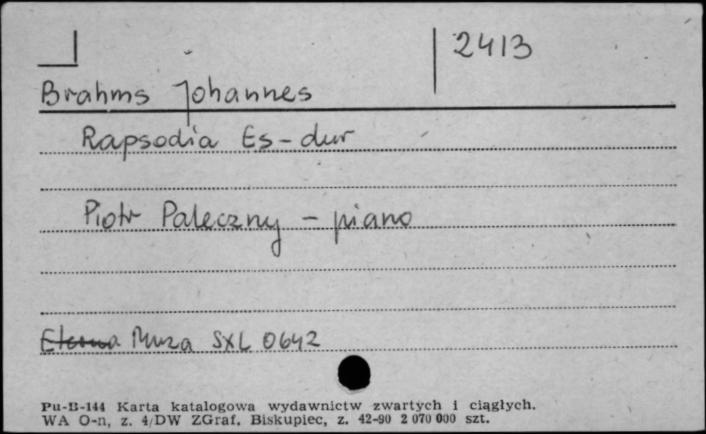 2413
Brahms Johannes
Rapsodia Es-dur
Piotr Paleczny - piano
Eterna Muza SXL 0642
Pu-B-144 Karta katalogowa wydawnictw zwartych i ciągłych.
WA O-n, z. 4/DW ZGraf. Biskupiec, z. 42-90 2 070 000 szt.